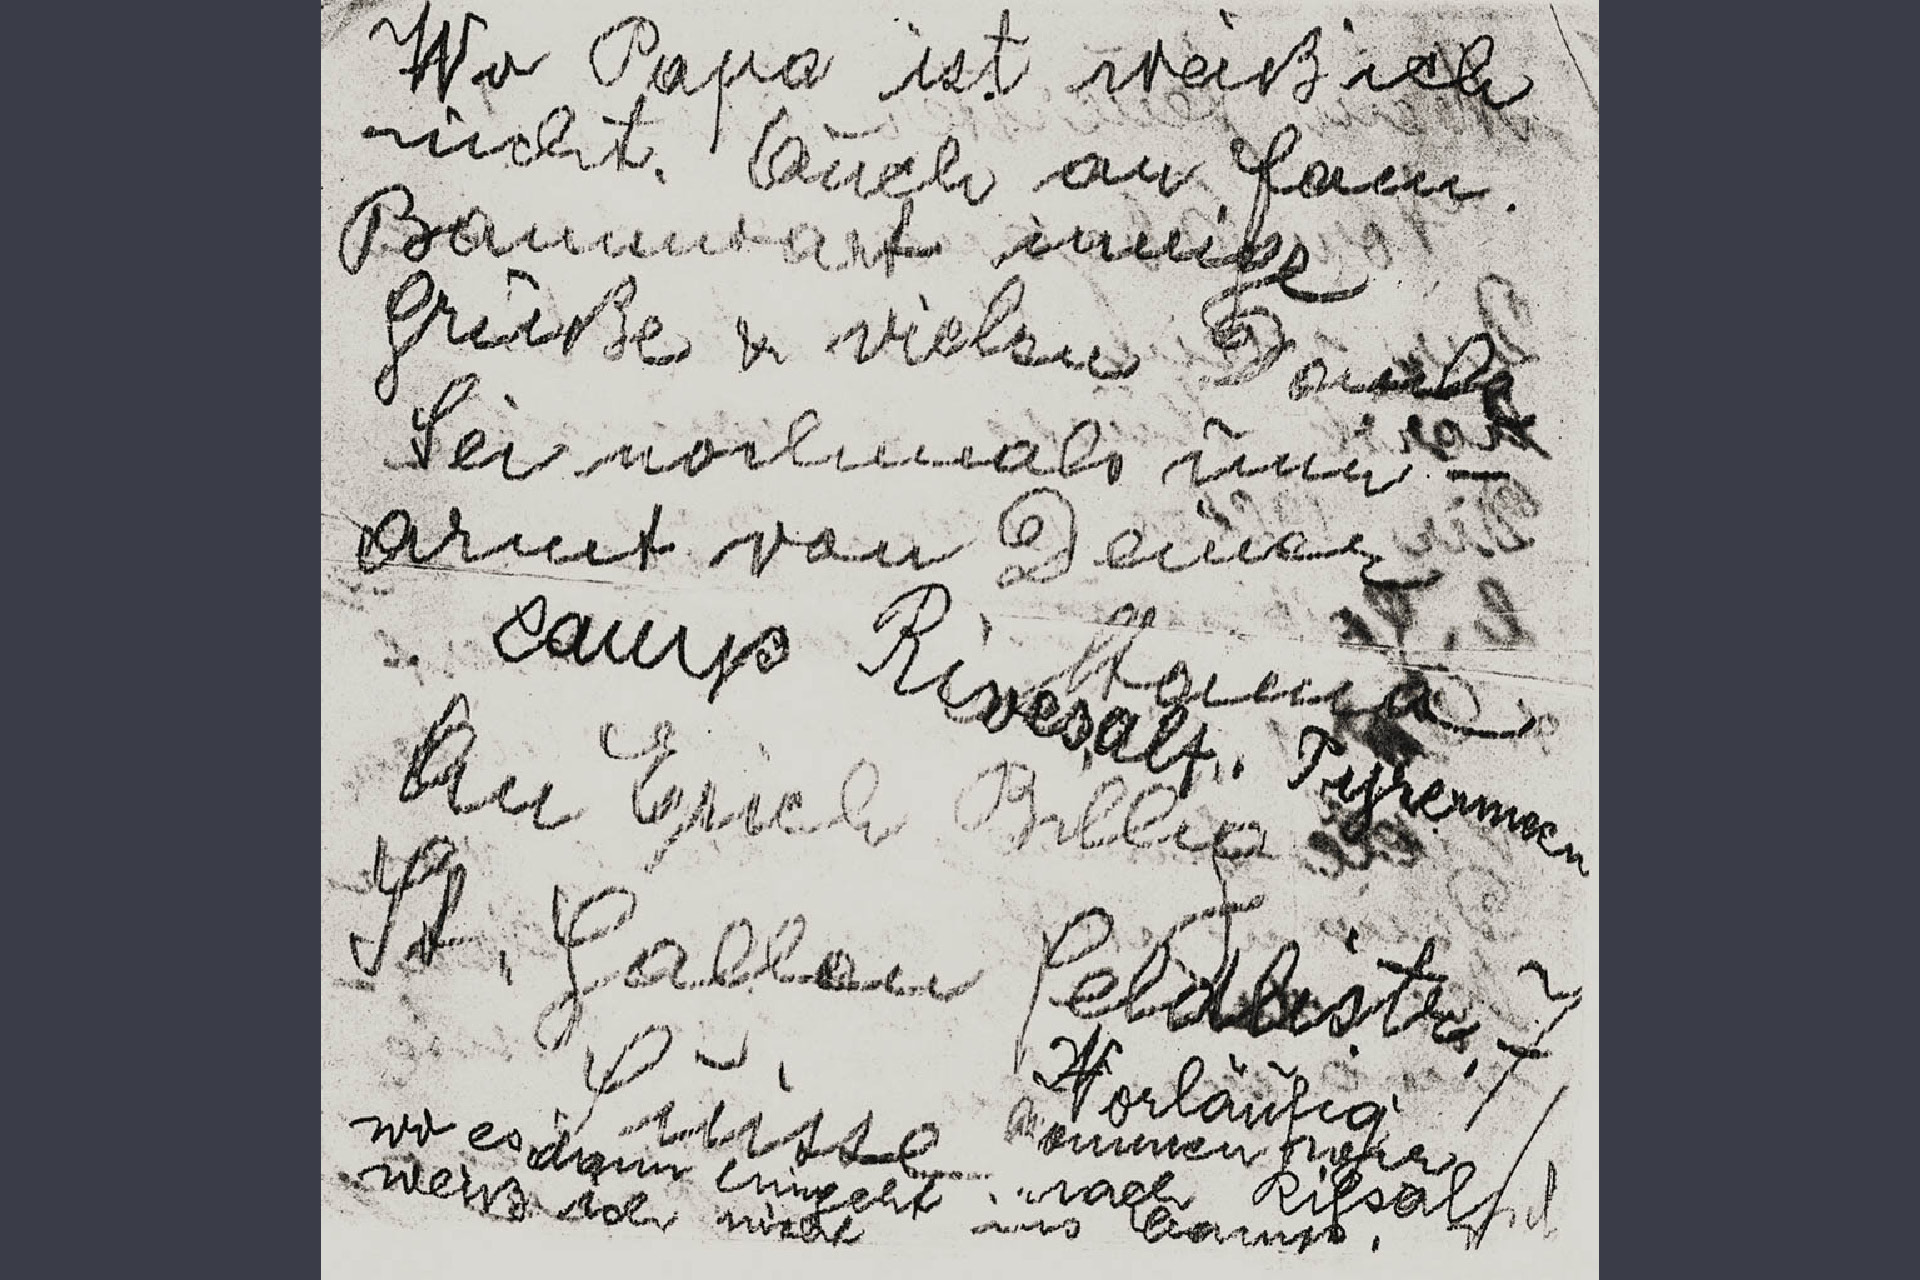 Wo Papa ist weiß ich
nicht. Auch an Fam.
Bannwart innige
Grüße & vielen Dank
Sei nochmals um-
armt von Deiner
Mama
camp Rivesalt. Pyrenneen
An Erich Billig
St. Gallen Feldlistr. 7
Süisse
Vorläufig
kommen wir
nach Rifsalt
ins Camp.
wo es dann hingeht
weiß ich nicht